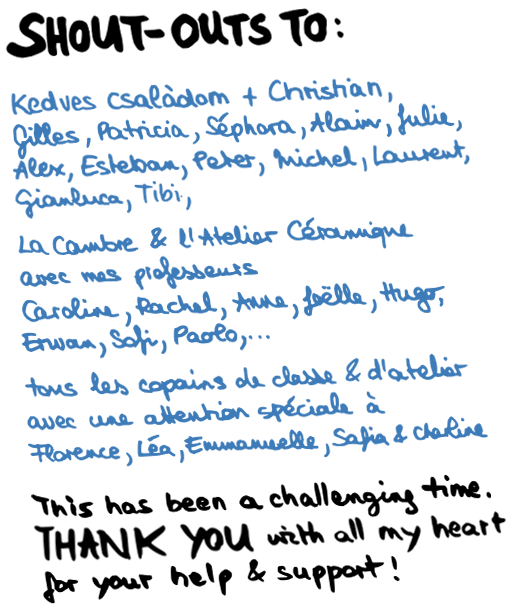 SHOUT-OUTS TO:
Kedves családom + Christian,
Gilles, Patricia, Séphora, Alain, Julie,
Alex, Esteban, Peter, Michel, Laurent,
Gianluca, Tibi,
La Cambre & l'Atelier Céramique
avec mes professeurs
Caroline, Rachel, Anne, Joëlle, Hugo,
Erwan, Sofi, Paolo,...
tous les copains de classe & d'atelier
avec une attention spéciale à
Florence, Léa, Emmanuelle, Safia & Charline
This has been a challenging time.
THANK YOU with all my heart
for your help & support!